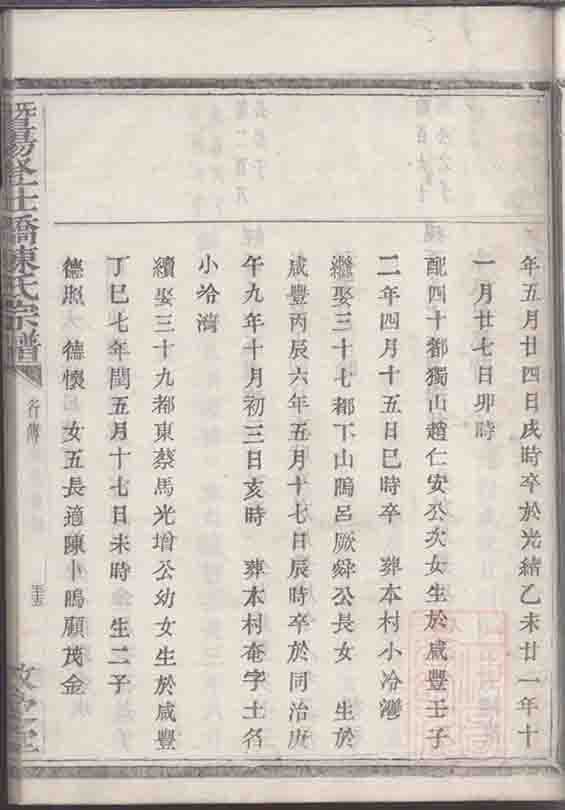 年五月廿四日戌時卒於光緒乙未廿一年十
一月廿七日卯時
配四十都獨山趙仁安公次女生於咸豐壬子
二年四月十五日巳時卒 葬本村小冷灣
繼娶三十七都下山隝呂厥舜公長女 生於
咸豐丙辰六年五月十七日辰時卒於同治庚
午九年十月初三日亥時 葬本村奄字土名
小冶灣
續娶三十九都東蔡馬光增公幼女生於咸豐
丁巳七年閏五月十七日未時 生二子
德照 德懷 女五長適陳卜鳴顧茂金
暨陽 橋陳氏宗譜
行傳